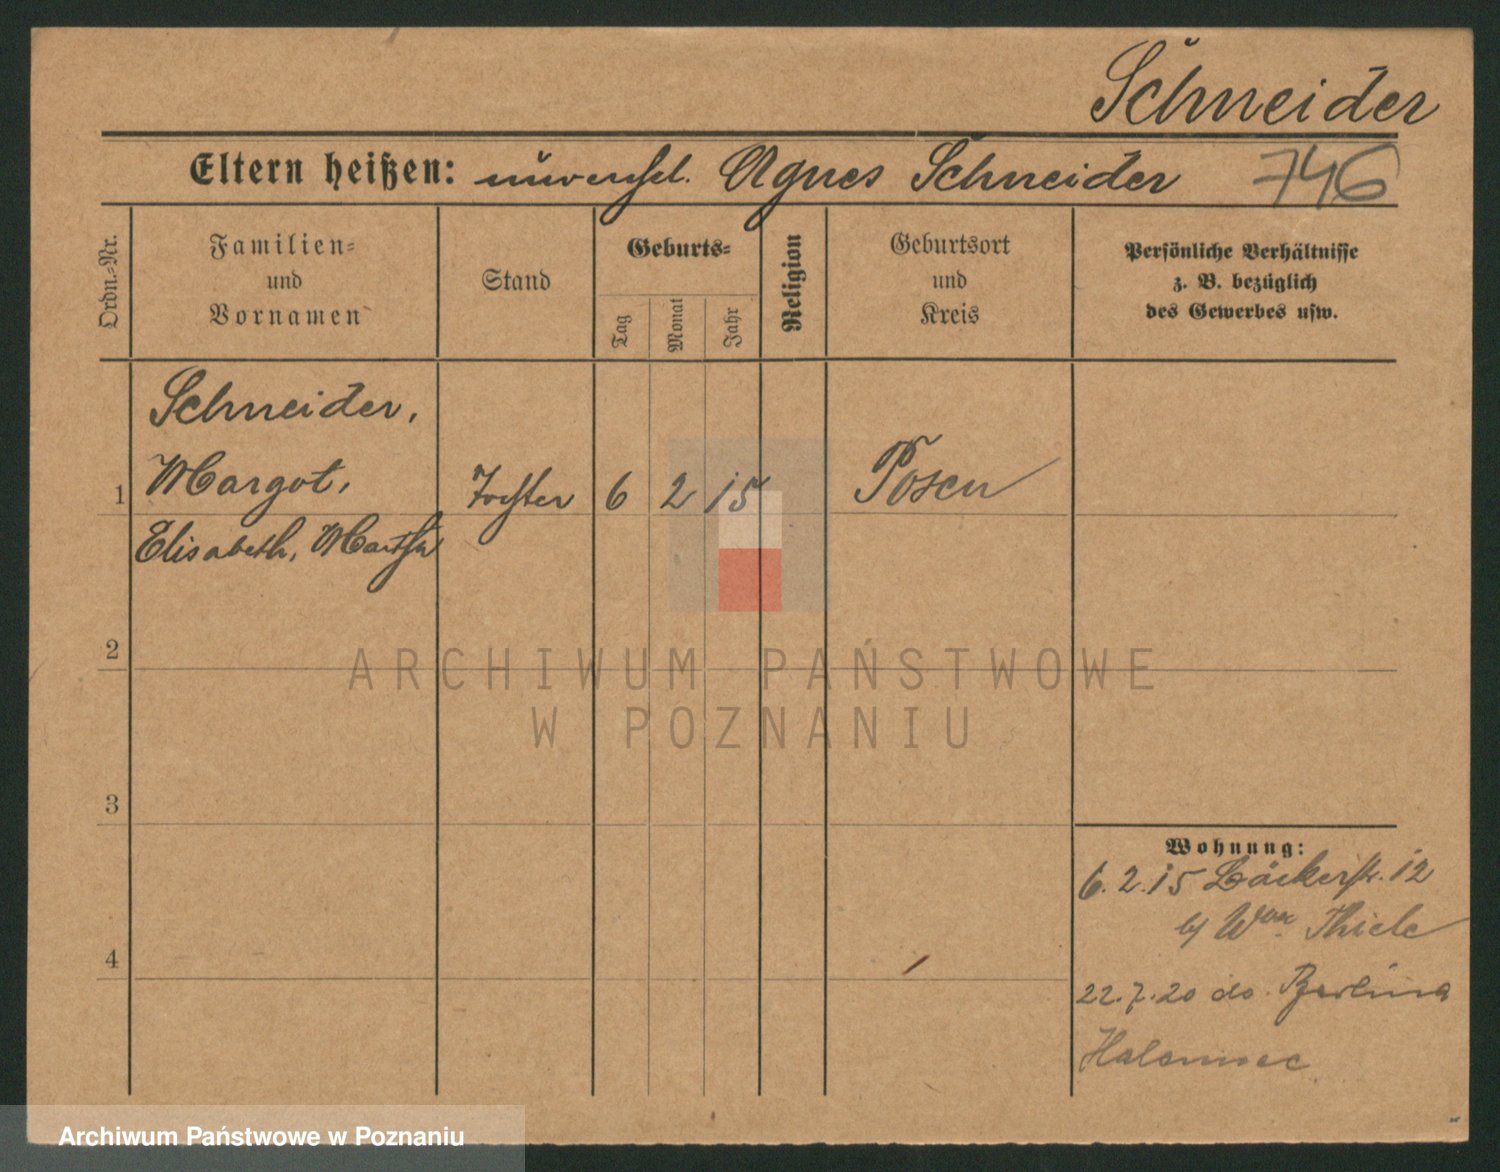 Schneider
Eltern heißen: unverehel. Agnes Schneider 746
Ordn.-Nr.
Familien-
und
Vornamen
Stand
Geburts-
Tag
Monat
Jahr
Religion
Geburtsort
und
Kreis
Persönliche Verhältnisse
z. B. bezüglich
des Gewerbes usw.
Schneider,
1 Margot, Tochter 6 2 15 Posen
Elisabeth, Martha
2
ARCHIWUM PAŃSTWOWE
W POZNANIU
3
Wohnung:
6.2.15 Bäckerstr. 12
b/ Wwe Thiele
4
22.7.20 do Berlina
Halensee
Archiwum Państwowe w Poznaniu